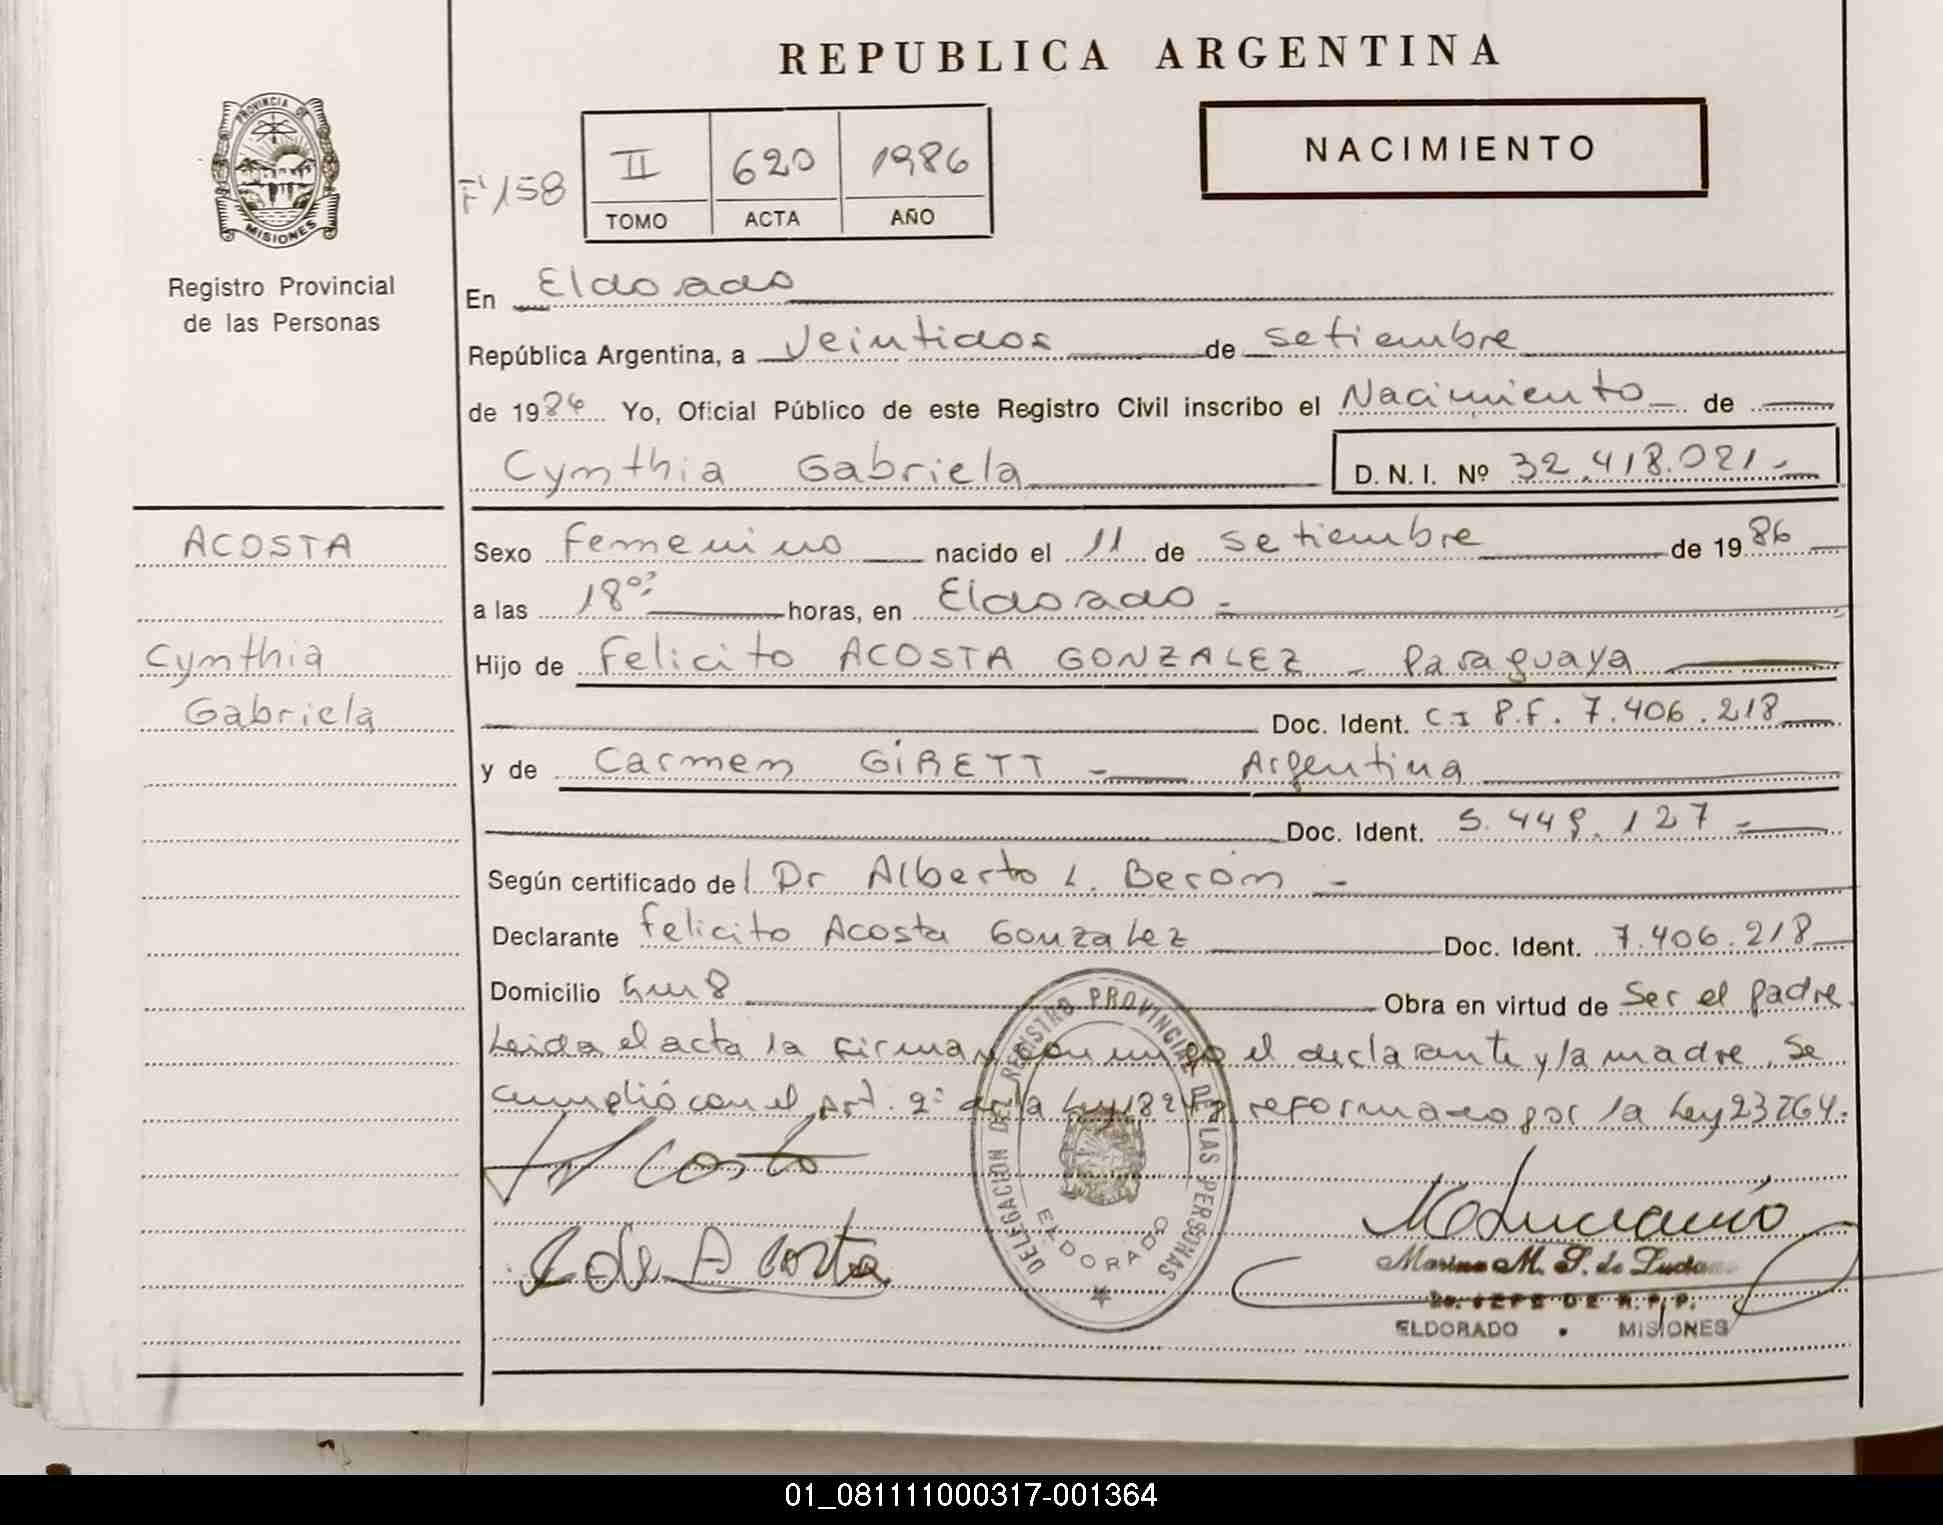 REPUBLICA ARGENTINA
PROVINCIA DE
MISIONES
Registro Provincial
de las Personas
NACIMIENTO
Fº 158
II 620 1986
TOMO ACTA AÑO
En Eldorado
República Argentina, a Veintidos de setiembre
de 1986 Yo, Oficial Público de este Registro Civil inscribo el Nacimiento de
Cynthia Gabriela D. N. I. Nº 32.418.021.-
ACOSTA
Cynthia
Gabriela
Sexo Femenino nacido el 11 de setiembre de 1986
a las 18 horas, en Eldorado.-
Hijo de Felicito ACOSTA GONZALEZ - Paraguaya
Doc. Ident. C.I P.F. 7.406.218
y de Carmen GIRETT - Argentina
Doc. Ident. 5.449.127.-
Según certificado del Dr Alberto L. Berón -
Declarante Felicito Acosta Gonzalez Doc. Ident. 7.406.218
Domicilio km 8 Obra en virtud de Ser el padre.
Leida el acta la firman conmigo el declarante y la madre, Se
cumplió con el Art. 2º de la Ley 18248 reformado por la Ley 23264.
DELEGACION DEL REGISTRO PROVINCIAL DE LAS PERSONAS
ELDORADO
Acosta
C de Acosta
MdLuciano
Marina M. S. de Luciano
2o. JEFE DE R. P. P.
ELDORADO • MISIONES
01_081111000317-001364